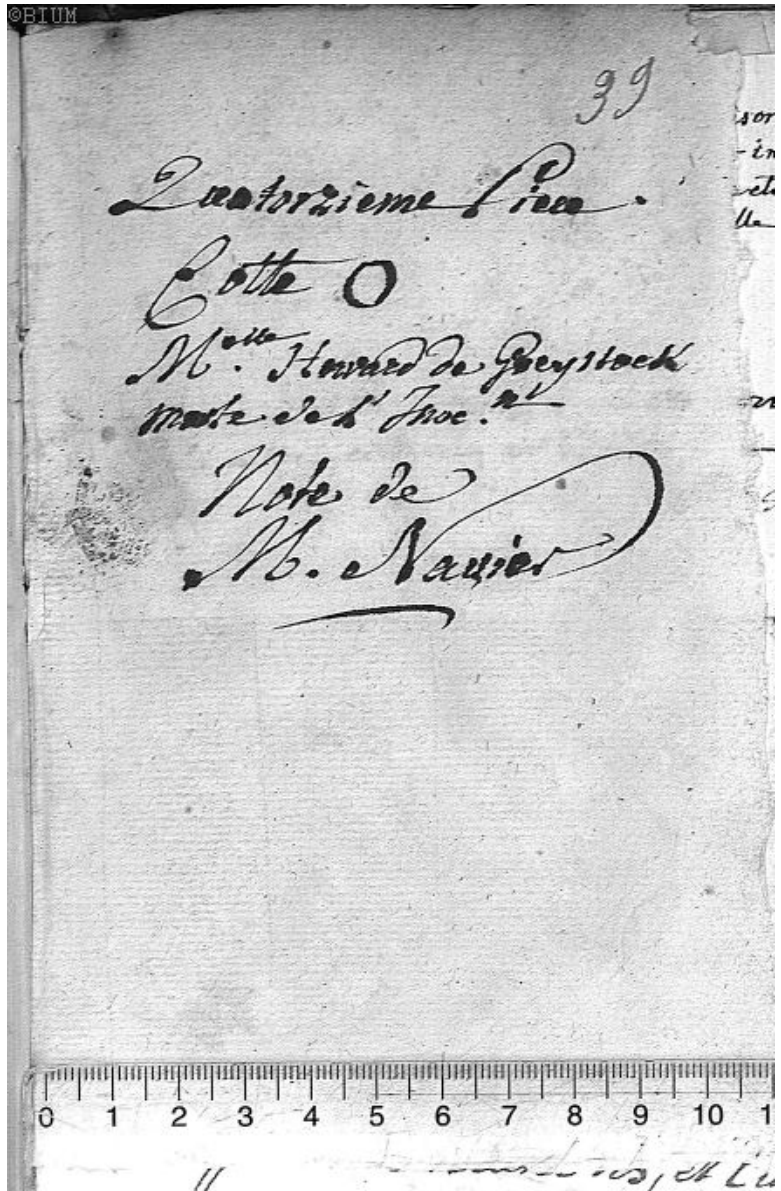 ©BIUM
39
Quatorzieme Piece.
Cotte O
M.elle Howard de Greystock
morte de l' Inoc.n
Note de
M. Navier
0 1 2 3 4 5 6 7 8 9 10